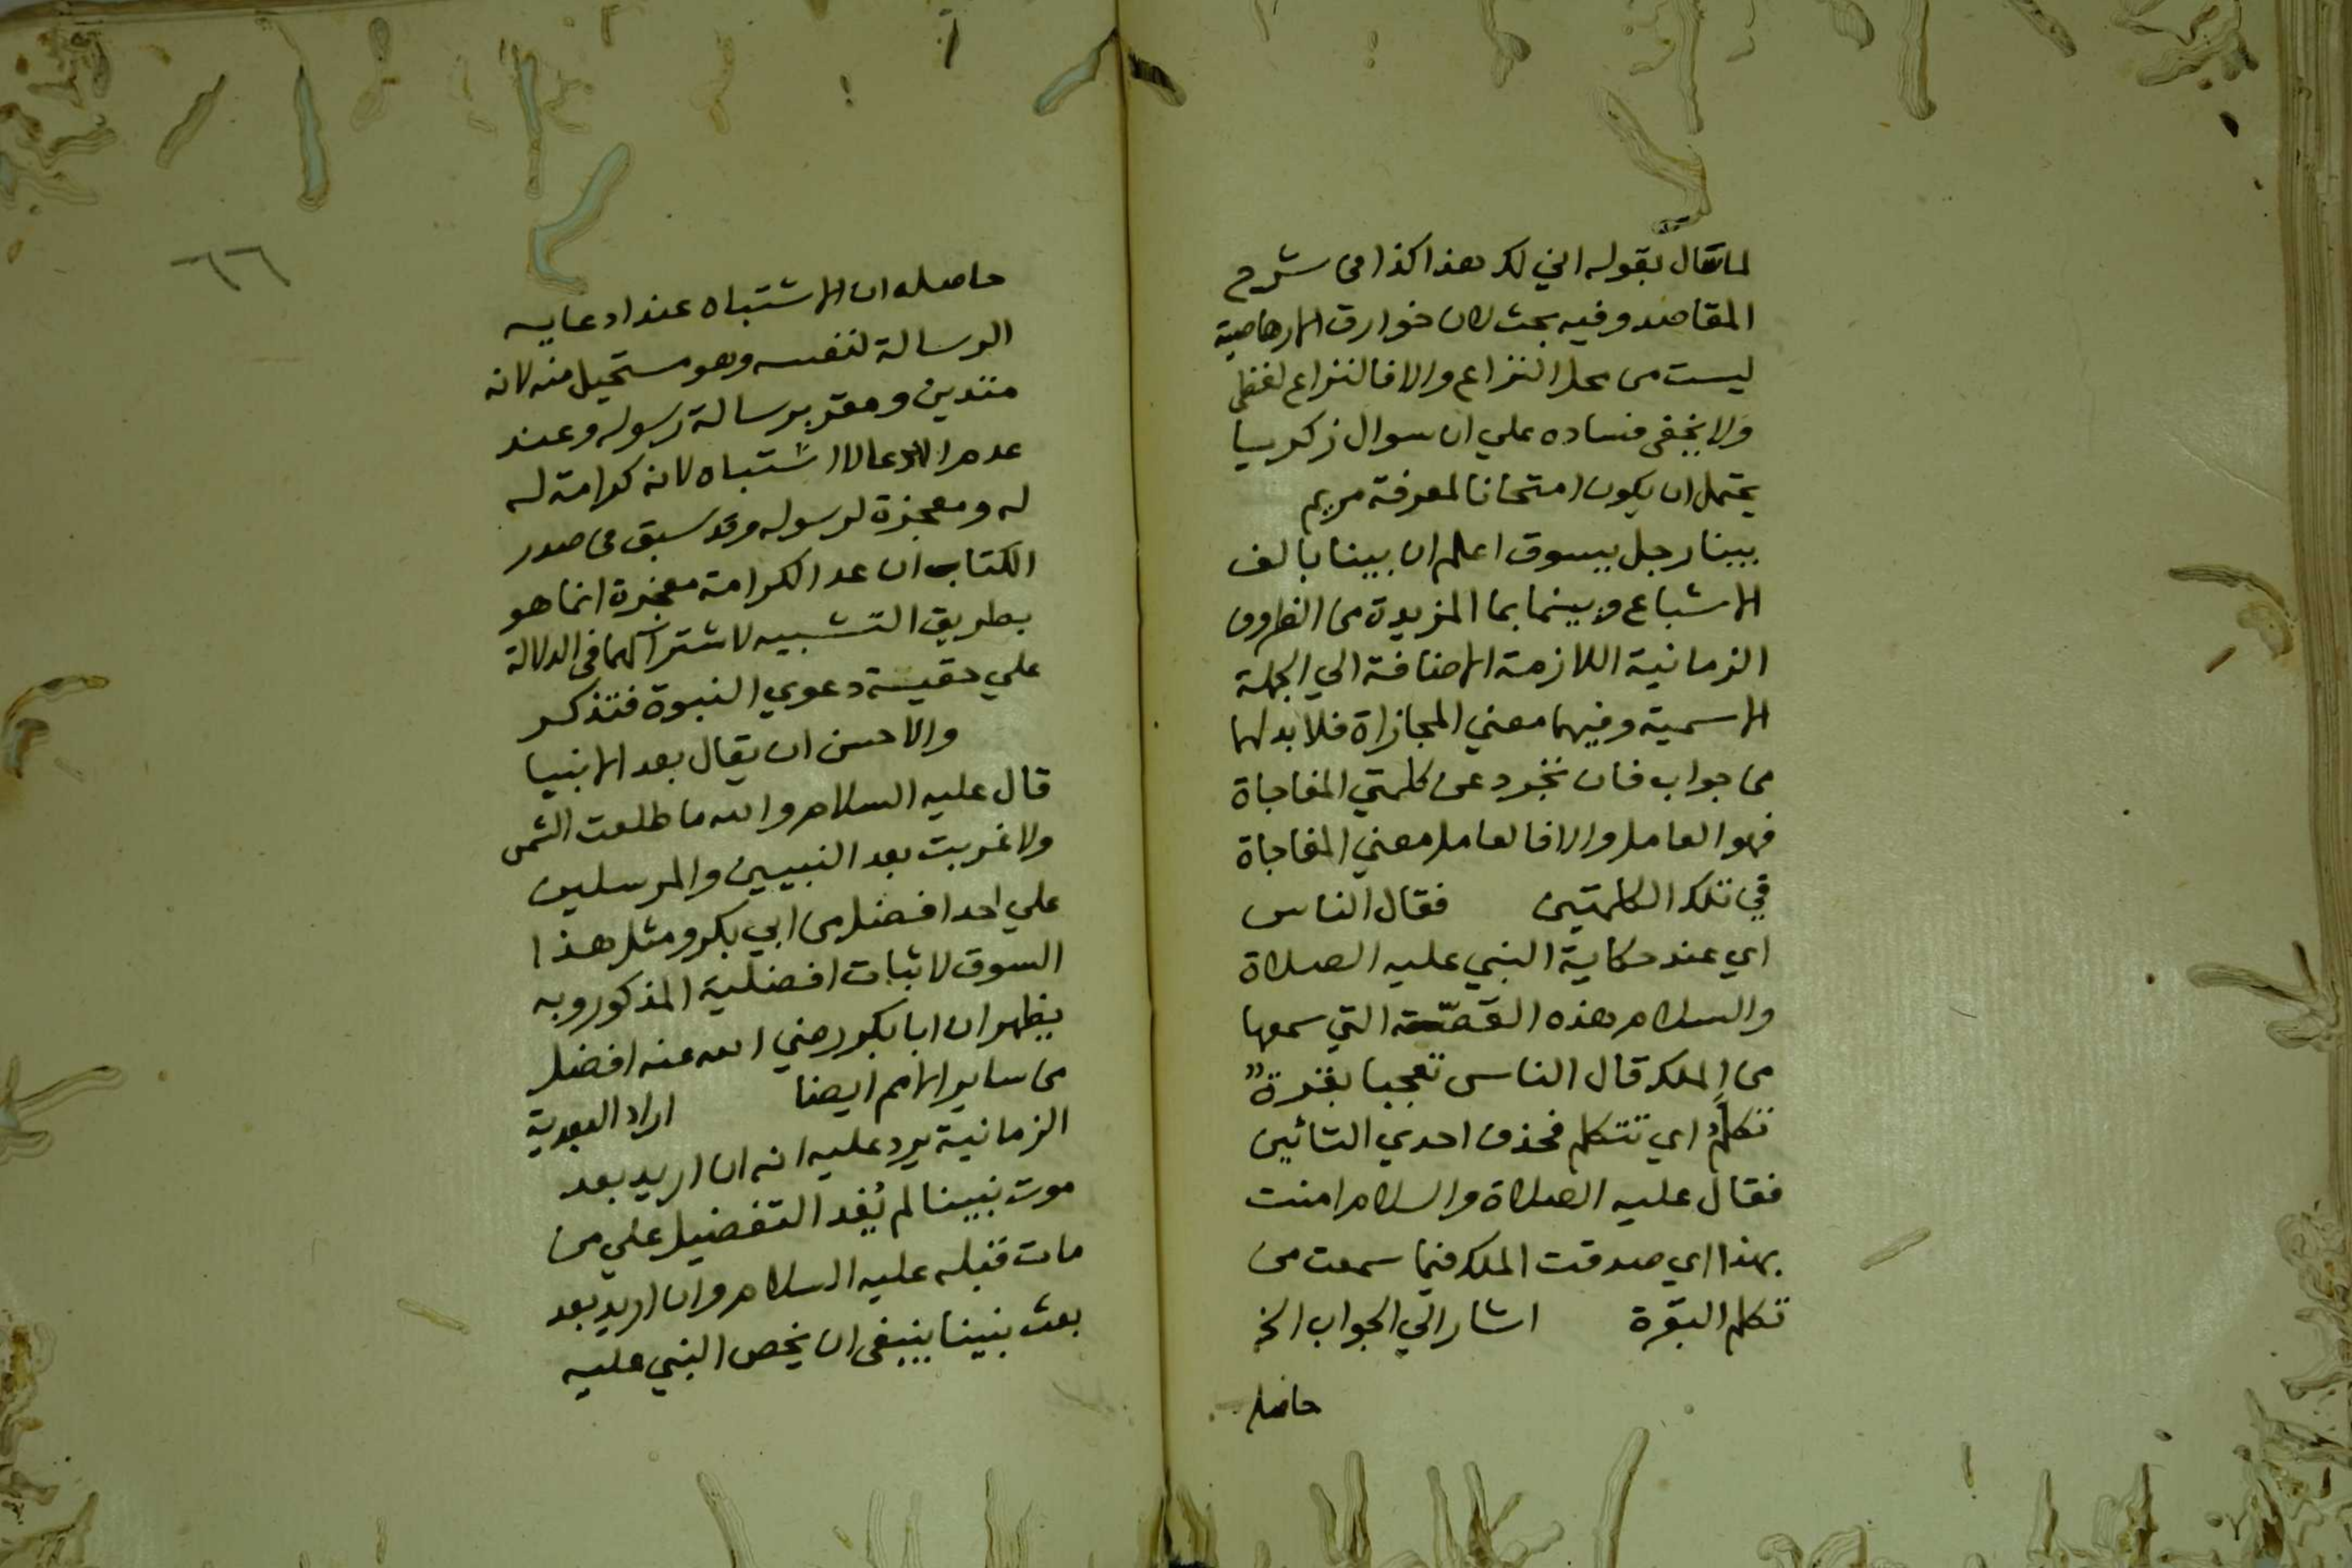 لما قال بقوله اني لك هذا كذا في شرح
المقاصد وفيه بحث لان خوارق الارهاصية
ليست من محل النزاع والا فالنزاع لفظي
ولا يخفى فساده علي ان سوال زكريا
يحتمل ان يكون امتحانا لمعرفة مريم
بينا رجل يسوق اعلم ان بينا بالف
الاشباع وبينما بما المزيدة من الظروف
الزمانية اللازمة الاضافة الي الجملة
الاسمية وفيهما معني المجازاة فلا بد لهما
من جواب فان تجرد عن كلمتي المفاجاة
فهو العامل والا فالعامل معني المفاجاة
في تلك الكلمتين فقال الناس
اي عند حكاية النبي عليه الصلاة
والسلام هذه القصّة التي سمعها
من الملك قال الناس تعجبا بقرةٌ
تكلّمُ اي تتكلم فحذف احدي التائين
فقال عليه الصلاة والسلام امنت
بهذا اي صدقت الملك فيما سمعت من
تكلم البقرة اشار الي الجواب الخ
حاصله
٦٦
حاصله ان الاشتباه عند ادعايه
الرسالة لنفسه وهو مستحيل منه لانه
متدين ومقر برسالة رسوله وعند
عدم الادعا لا اشتباه لانه كرامة له
له ومعجزة لرسوله وقد سبق في صدر
الكتاب ان عد الكرامة معجزة انما هو
بطريق التشبيه لاشتراكهما في الدلالة
علي حقيسة دعوي النبوة فتذكر
والاحسن ان يقال بعد الانبيا
قال عليه السلام والله ما طلعت الشمس
ولا غربت بعد النبيين والمرسلين
علي احد افضل من ابي بكر ومثل هذا
السوق لاثبات افضلية المذكور وبه
يظهر ان ابا بكر رضي الله عنه افضل
من ساير الامم ايضا اراد البعدية
الزمانية يرد عليه انه ان اريد بعد
موت نبينا لم يُفد التفضيل علي من
مات قبله عليه السلام وان اريد بعد
بعث نبينا ينبغى ان يخص النبي عليه